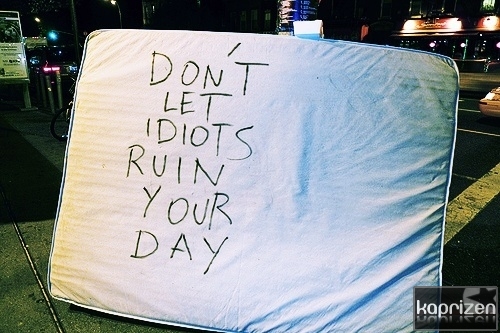 DON'T
LET
IDIOTS
RUIN
YOUR
DAY
kaprizen